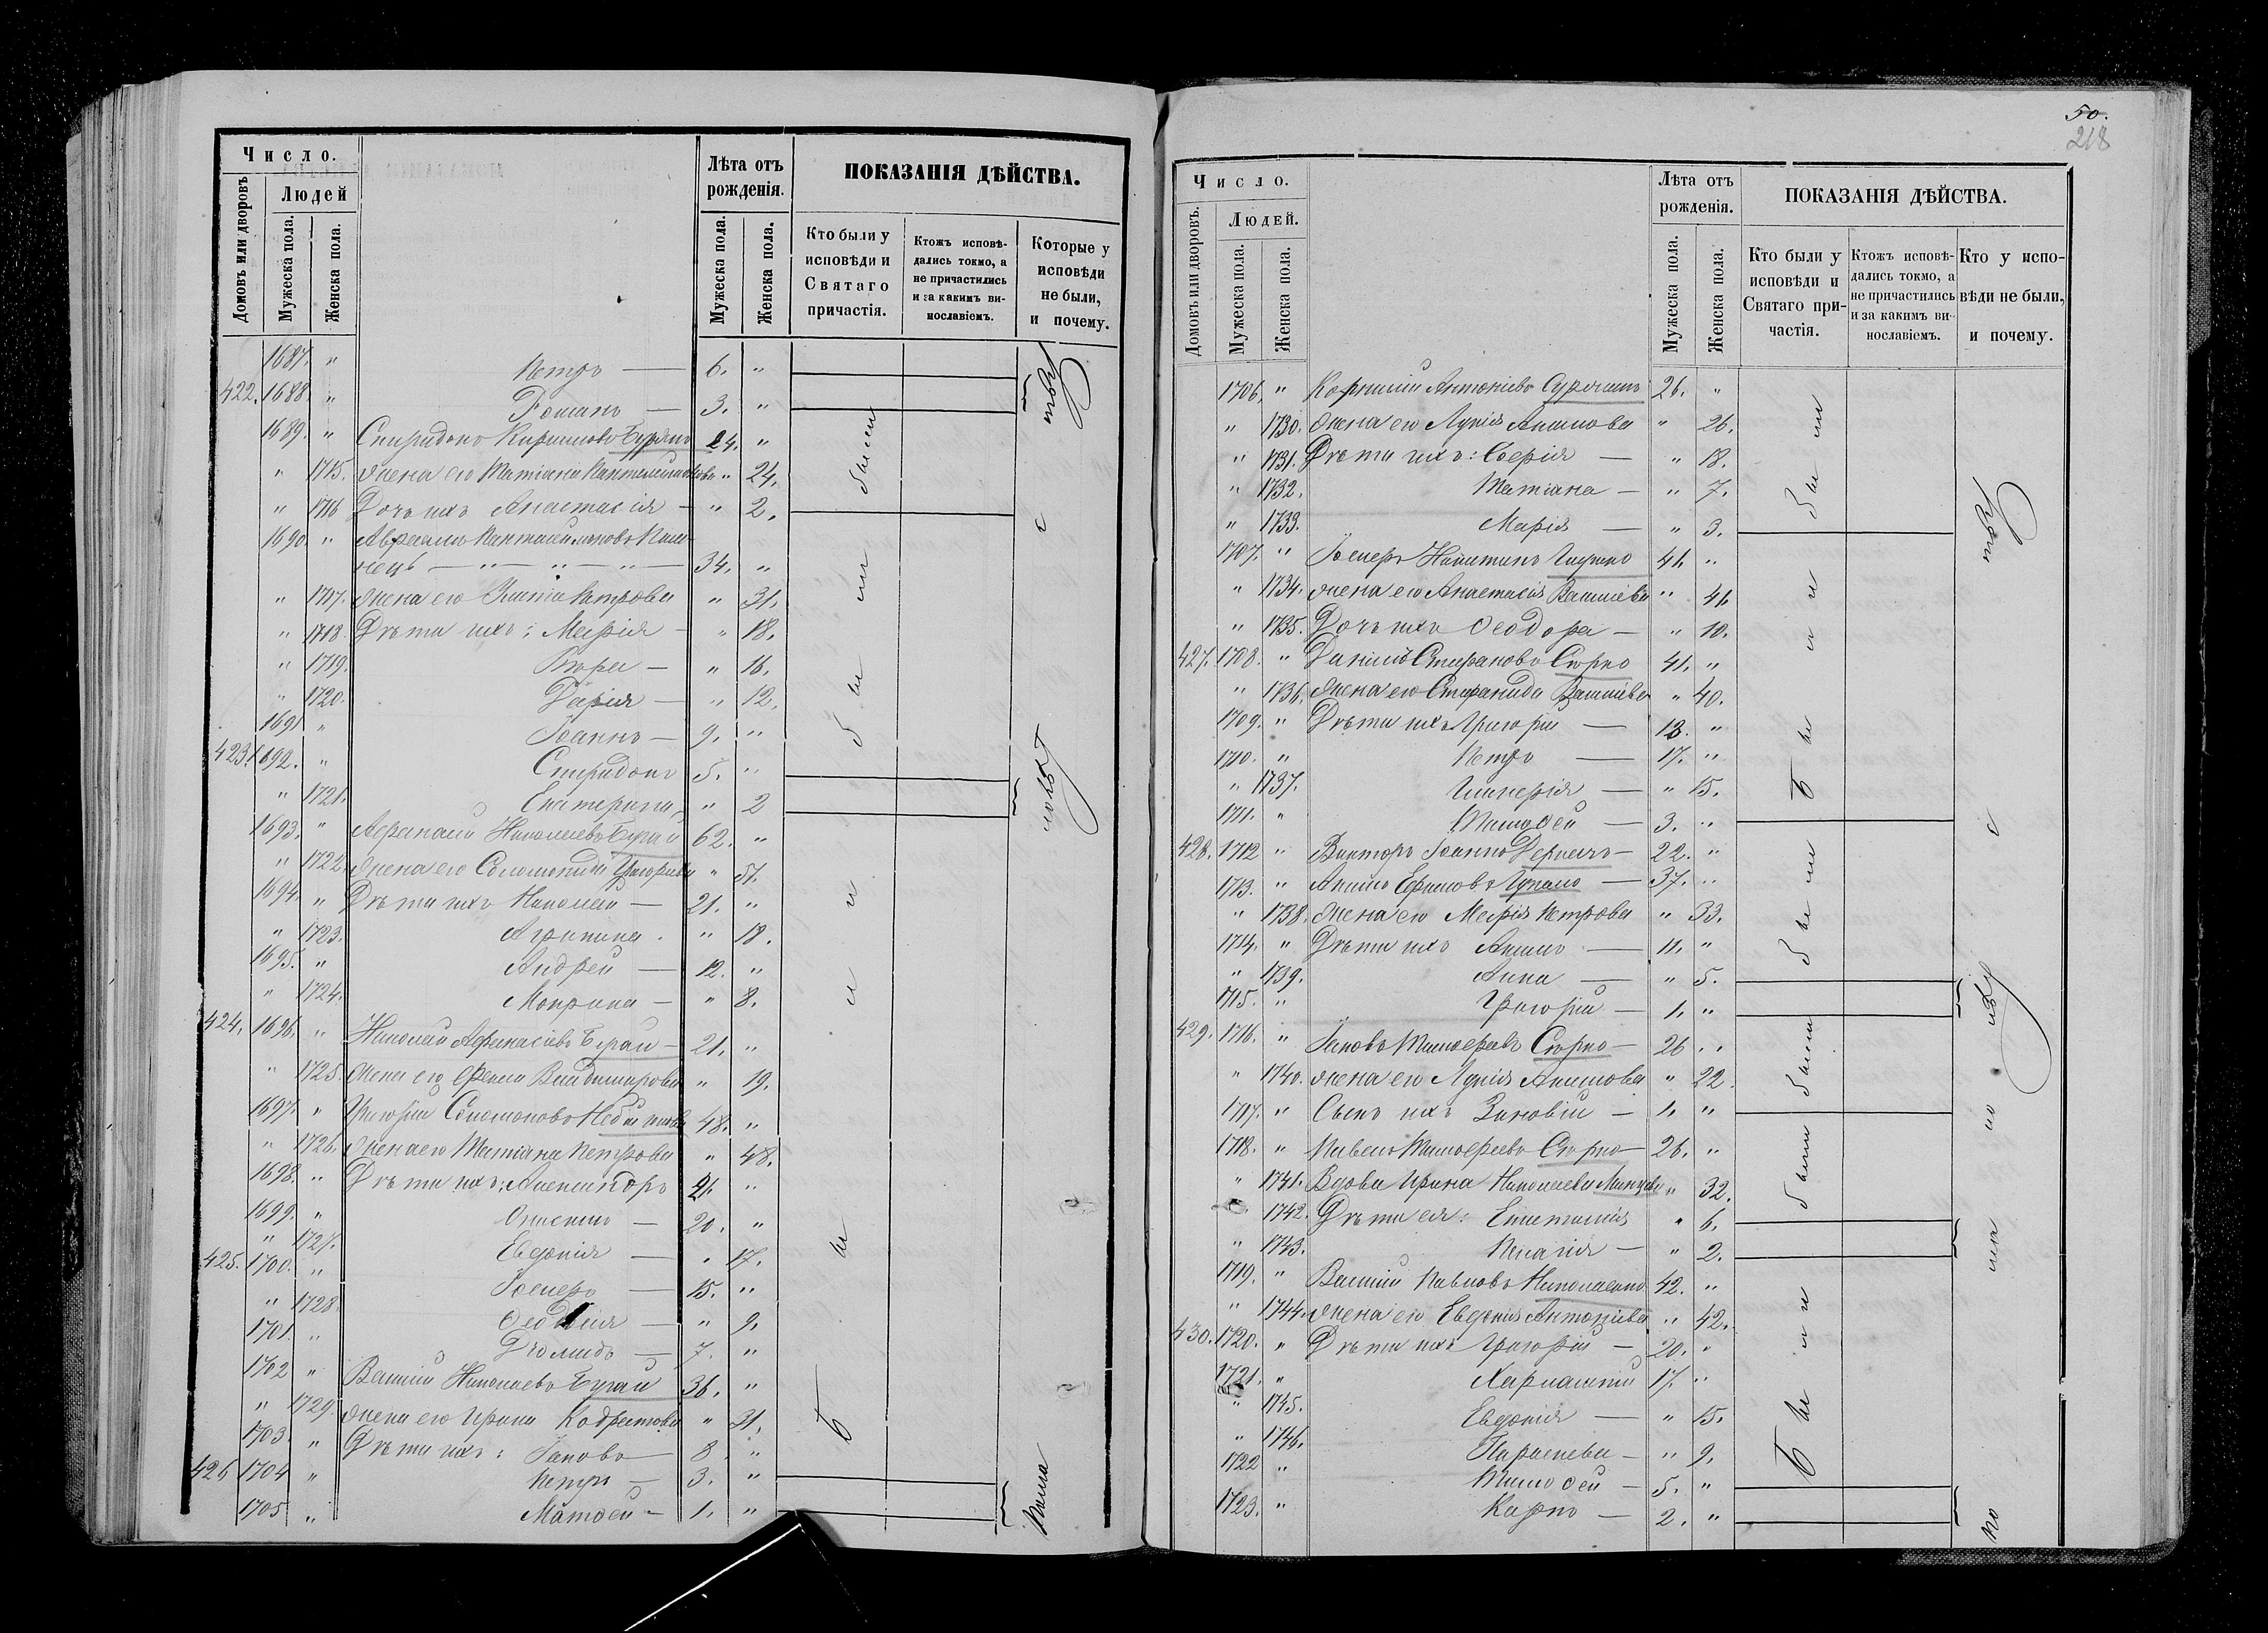 Число.
Домовъ или дворовъ
Людей
Мужеска пола.
Женска пола.
Лѣта отъ рожденія.
Мужеска пола.
Женска пола.
ПОКАЗАНІЯ ДѢЙСТВА.
Кто были у исповѣди и Святаго причастія.
Ктожъ исповѣдались токмо, а не причастились и за какимъ винославіемъ.
Которые у исповѣди не были, и почему.
1687. " Петръ — 6. "
422. 1688. " Романъ — 3. "
1689. " Спиридонъ 24. "
" 1715. Жена его Татіана " 24.
" 1716 Дочь ихъ Анастасія — " 2.
1690. " Авраамъ
34. "
" 1717. Жена его Петрова " 31.
" 1718. Дѣти ихъ: Марія — " 18.
" 1719. Вѣра — " 16.
" 1720. Дарія — " 12.
1691 " Іоаннъ — 9. "
423. 1692. " Спиридонъ 5. "
" 1721. Екатерина " 2
1693. " Афанасій Николаевъ Бугай 62. "
" 1722. Жена его Соломонія Григорьева " 51.
1694. " Дѣти ихъ Николай — 21. "
" 1723. Агрипина. " 18.
1695. " Андрей — 12. "
" 1724. Мокрина — " 8.
424. 1696. " Николай Афанасіевъ Бугай — 21. "
" 1725. Жена его Владимирова " 19.
1697. " Григорій 48. "
" 1726. Жена его Татіана Петрова " 48.
1698. " Дѣти ихъ: Александръ 21. "
1699. " Онисимъ — 20. "
" 1727. Евдокія — " 17.
425. 1700. " Іосифъ — 15. "
" 1728. — " 9.
1701. " Діомидъ — 7. "
1702 " Василій Николаевъ Бугай 36. "
" 1729. Жена его Ирина " 31.
1703. " Дѣти ихъ: Іаковъ 8 "
426 1704 " Петръ — 3. "
1705 " Матѳей — 1. "
были
были
Были
малолѣтству
По малолѣтству
50.
218
Число.
Домовъ или дворовъ.
Людей.
Мужеска пола.
Женска пола.
Лѣта отъ рожденія.
Мужеска пола.
Женска пола.
ПОКАЗАНІЯ ДѢЙСТВА.
Кто были у исповѣди и Святаго причастія.
Ктожъ исповѣдались токмо, а не причастились и за какимъ винославіемъ.
Кто у исповѣди не были, и почему.
1706. " Антоніевъ 26. "
" 1730. Жена его Лукія Акимова " 26.
" 1731. Дѣти ихъ: Софія — " 18.
" 1732. Татіана — " 7.
" 1733. Марія — " 3.
1707. " Іосифъ Никитинъ 41. "
" 1734. Жена его Анастасія Василіева " 41.
" 1735. Дочь ихъ Ѳеодора — " 10.
427. 1708. " Даніилъ Стефановъ Сѣрко 41. "
" 1736. Жена его Стефанида Василіева " 40.
1709. " Дѣти ихъ Григорій — 18. "
1710. " Петръ — 17. "
" 1737. Гликерія — " 15.
1711. " Тимоѳей — 3. "
428. 1712 " Викторъ — 22. "
1713. " Акимъ Ефимовъ — 37. "
" 1738. Жена его Марія Петрова " 33.
1714. " Дѣти ихъ Акимъ — 11. "
" 1739. Анна — " 5.
1715. " Григорій — 1. "
429. 1716. " Іаковъ Тимоѳеевъ Сѣрко — 26 "
" 1740. Жена его Лукія Акимова " 22.
1717. " Сынъ ихъ Зиновій — 1. "
1718. " Павелъ Тимоѳеевъ Сѣрко — 26. "
" 1741. Вдова Ирина Николаева " 32.
" 1742. Дѣти ея: " 6.
" 1743. Пелагія — " 2.
1719. " Василій Павловъ Николаенко 42. "
" 1744. Жена его Евдокія Антоніева " 42.
430. 1720. " Дѣти ихъ Григорій — 20. "
1721. " Харлампій 17. "
" 1745. Евдокія — " 15.
" 1746. Параскева — " 9.
1722 " Тимоѳей — 5. "
1723. " Карпъ — 2. "
были
Были
были
были
были
Были
По малолѣтству